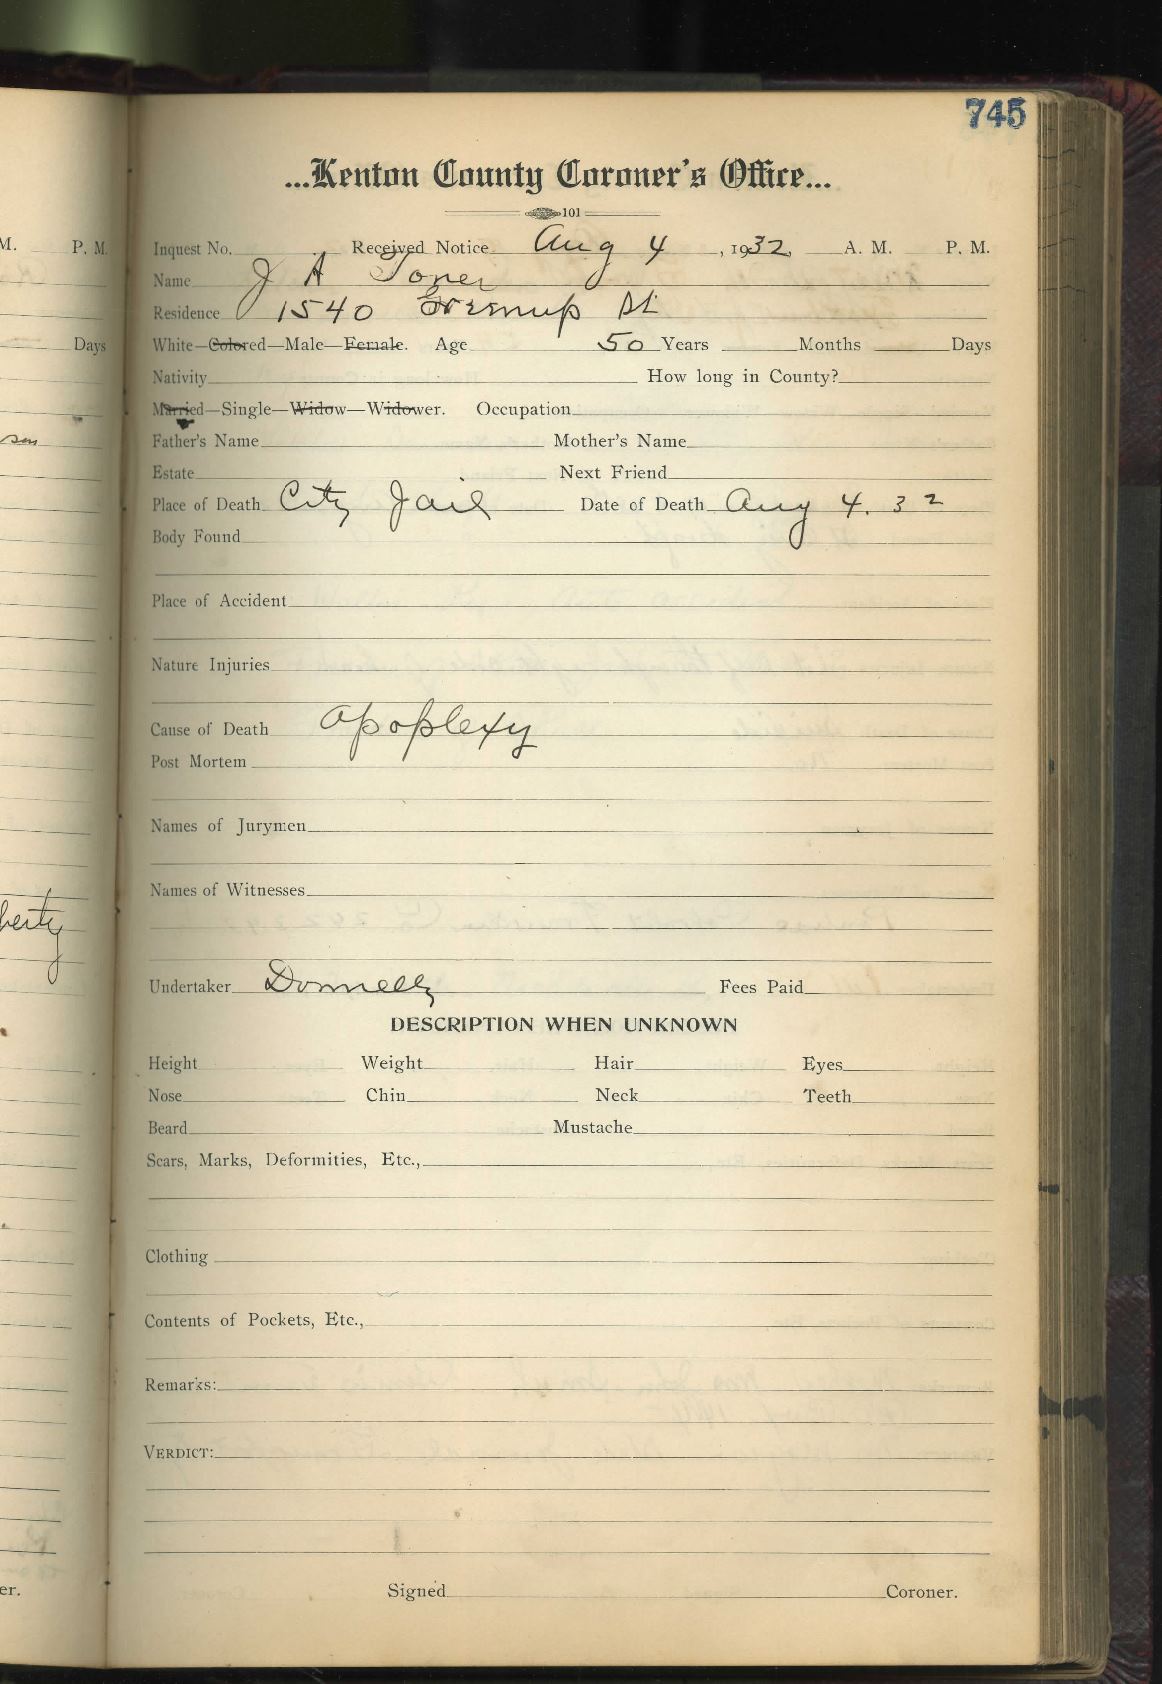 745
...Kenton County Coroner's Office...
101
Inquest No. Received Notice Aug 4, 1932, A. M. P. M.
Name J A Toner
Residence 1540 Greenup St
White—Colored—Male—Female. Age 50 Years Months Days
Nativity How long in County?
Married—Single—Widow—Widower. Occupation
Father's Name Mother's Name
Estate Next Friend
Place of Death City Jail Date of Death Aug 4. 32
Body Found
Place of Accident
Nature Injuries
Cause of Death Apoplexy
Post Mortem
Names of Jurymen
Names of Witnesses
Undertaker Donnelly Fees Paid
DESCRIPTION WHEN UNKNOWN
Height Weight Hair Eyes
Nose Chin Neck Teeth
Beard Mustache
Scars, Marks, Deformities, Etc.,
Clothing
Contents of Pockets, Etc.,
Remarks:
VERDICT:
Signed Coroner.
M. P. M.
Days
son
berty
er.